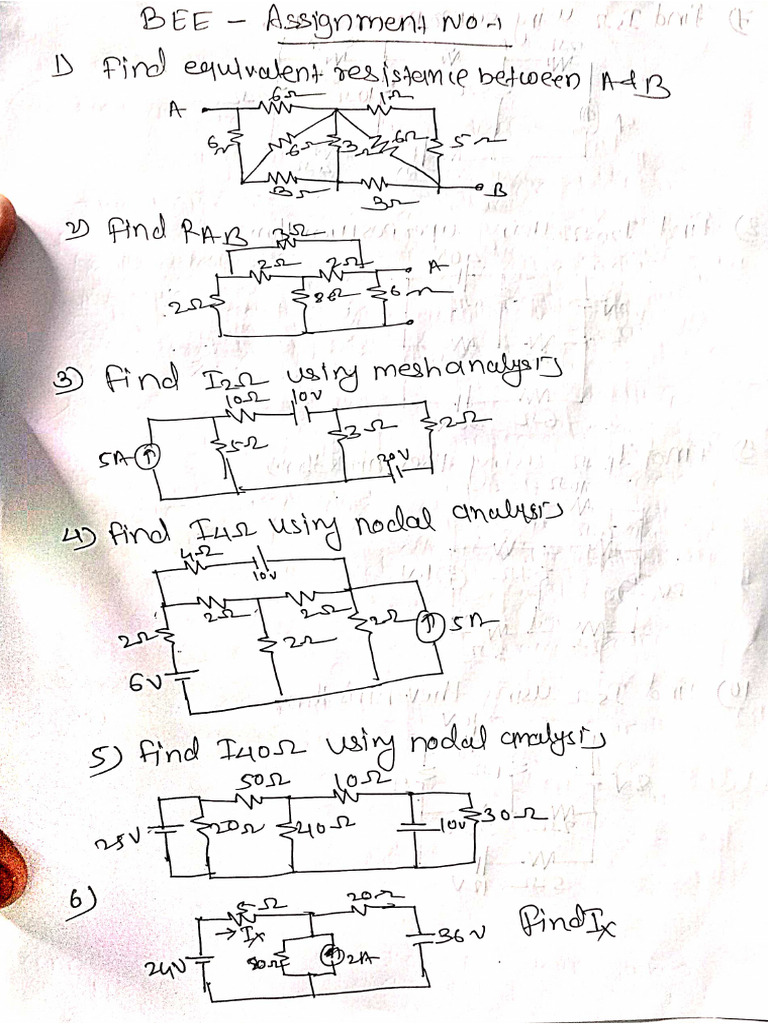 BEE - Assignment No-1
1) Find equivalent resistance between A & B
6Ω 1Ω
A
6Ω 6Ω 3Ω 6Ω 5Ω
3Ω 3Ω B
2) Find RAB 2Ω
2Ω 2Ω A
2Ω 8Ω 6Ω
3) Find I2Ω using mesh analysis
10Ω 10V
5A 5Ω 3Ω 2Ω
20V
4) Find I4Ω using nodal analysis
4Ω 10V
2Ω 2Ω
2Ω 2Ω 2Ω 5A
6V
5) Find I40Ω using nodal analysis
50Ω 10Ω
25V 20Ω 40Ω 10V 30Ω
6)
Ω 20Ω
Ix 36V Find Ix
24V 50Ω 2A